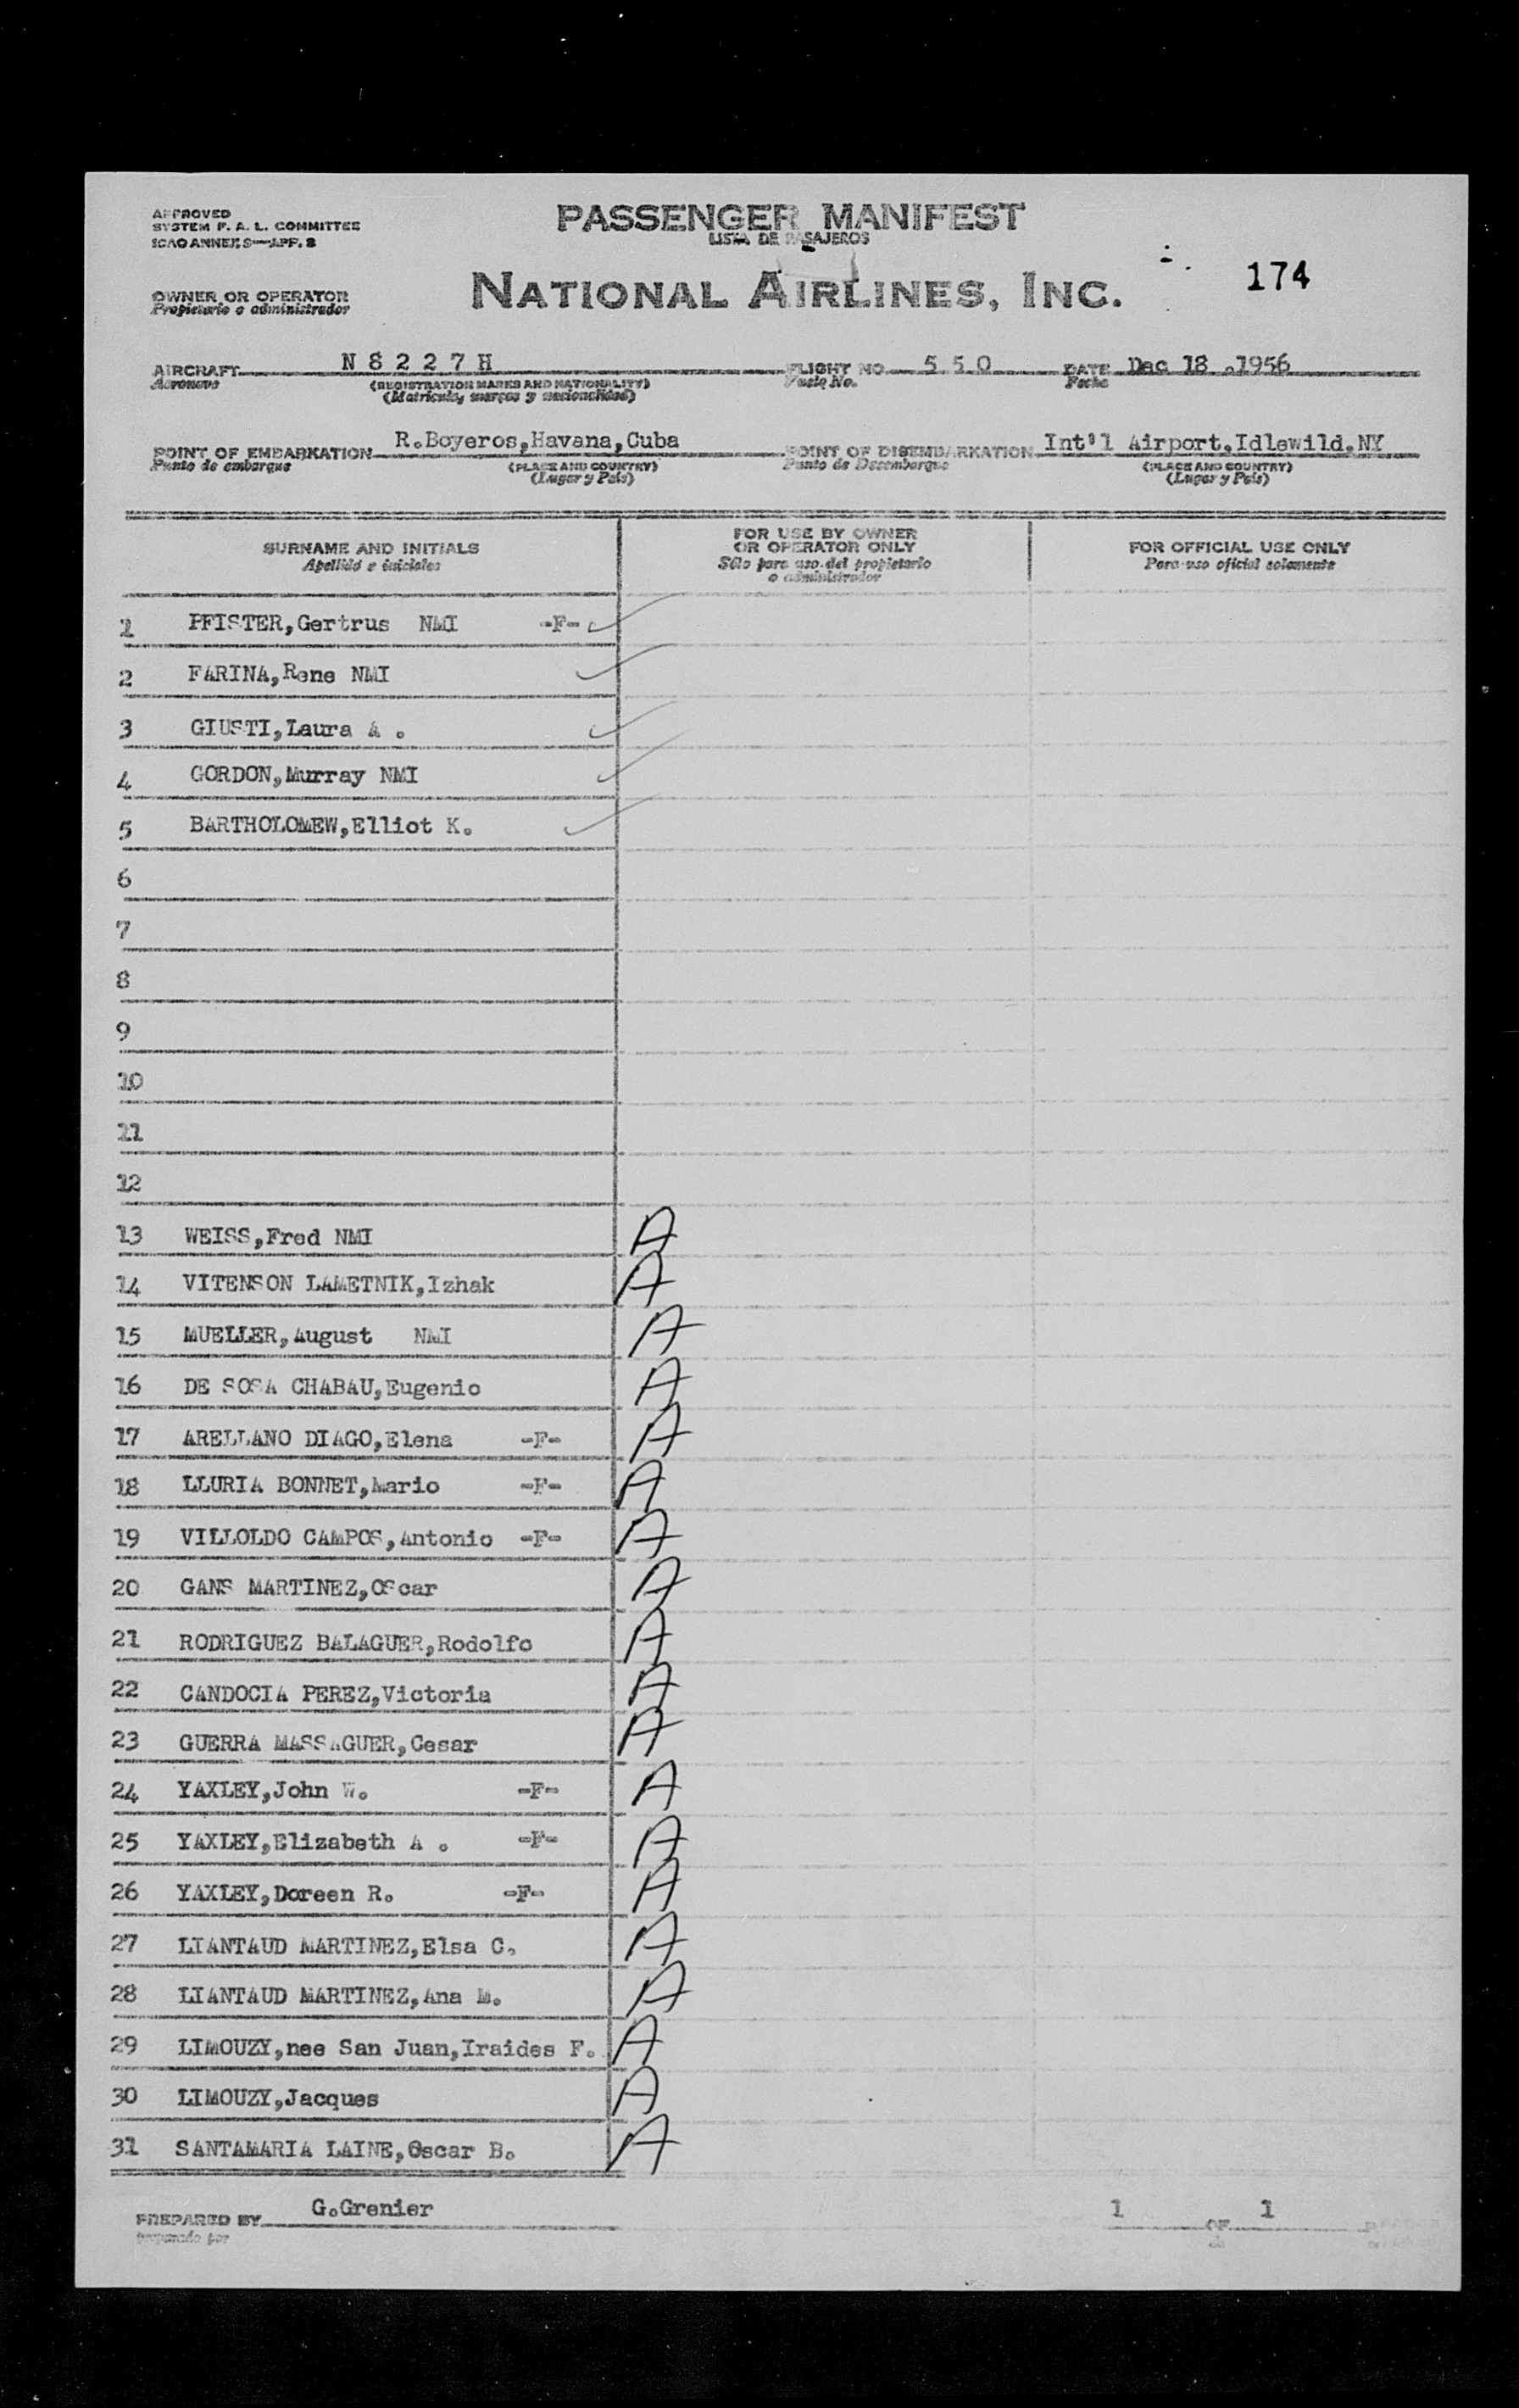 APPROVED
SYSTEM F. A. L. COMMITTEE
ICAO ANNEX 9—APP. 3
PASSENGER MANIFEST
LISTA DE PASAJEROS
174
OWNER OR OPERATOR
Propietario o administrador
NATIONAL AIRLINES, INC.
AIRCRAFT N 8 2 2 7 H FLIGHT NO. 5 5 0 DATE Dec 18 .1956
Aeronave (REGISTRATION MARKS AND NATIONALITY) Vuelo No. Fecha
(Matricula, marcas y nacionalidad)
POINT OF EMBARKATION R.Boyeros,Havana,Cuba POINT OF DISEMBARKATION Int'l Airport,Idlewild.NY
Punto de embarque (PLACE AND COUNTRY) Punto de Desembarque (PLACE AND COUNTRY)
(Lugar y País) (Lugar y País)
SURNAME AND INITIALS
Apellido e iniciales
FOR USE BY OWNER
OR OPERATOR ONLY
Sólo para uso del propietario
o administrador
FOR OFFICIAL USE ONLY
Para uso oficial solamente
1 PFISTER,Gertrus NMI -F-
2 FARINA,Rene NMI
3 GIUSTI,Laura A .
4 GORDON,Murray NMI
5 BARTHOLOMEW,Elliot K.
6
7
8
9
10
11
12
13 WEISS,Fred NMI A
14 VITENSON LAMETNIK,Izhak A
15 MUELLER,August NMI A
16 DE SOSA CHABAU,Eugenio A
17 ARELLANO DIAGO,Elena -F- A
18 LLURIA BONNET,Mario -F- A
19 VILLOLDO CAMPOS,Antonio -F- A
20 GANS MARTINEZ,Oscar A
21 RODRIGUEZ BALAGUER,Rodolfo A
22 CANDOCIA PEREZ,Victoria A
23 GUERRA MASSAGUER,Cesar A
24 YAXLEY,John W. -F- A
25 YAXLEY,Elizabeth A . -F- A
26 YAXLEY,Doreen R. -F- A
27 LIANTAUD MARTINEZ,Elsa C. A
28 LIANTAUD MARTINEZ,Ana M. A
29 LIMOUZY,nee San Juan,Iraides F. A
30 LIMOUZY,Jacques A
31 SANTAMARIA LAINE,Oscar B. A
PREPARED BY G.Grenier 1 OF 1
preparado por